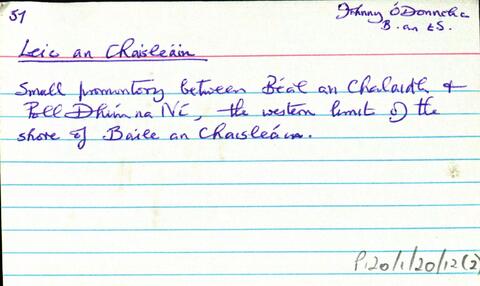 51
Johnny O'Donnella
B. an tS.
Leic an Chaisleáin
Small promontory between Béal an Chalaidh &
Poll Dhúin na Ní, the western limit of the
shore of Baile an Chaisleáin.
P120/1/20/12(2)